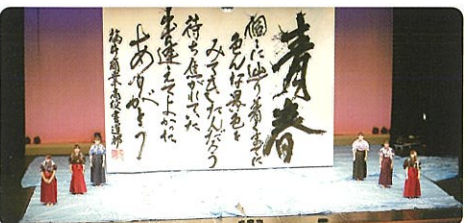 青春
個々に辿り着くまでに
色んな景色を
みてきたんだろう
待ち焦がれてた
出逢えてよかった
ありがとう
福井商業高校書道部